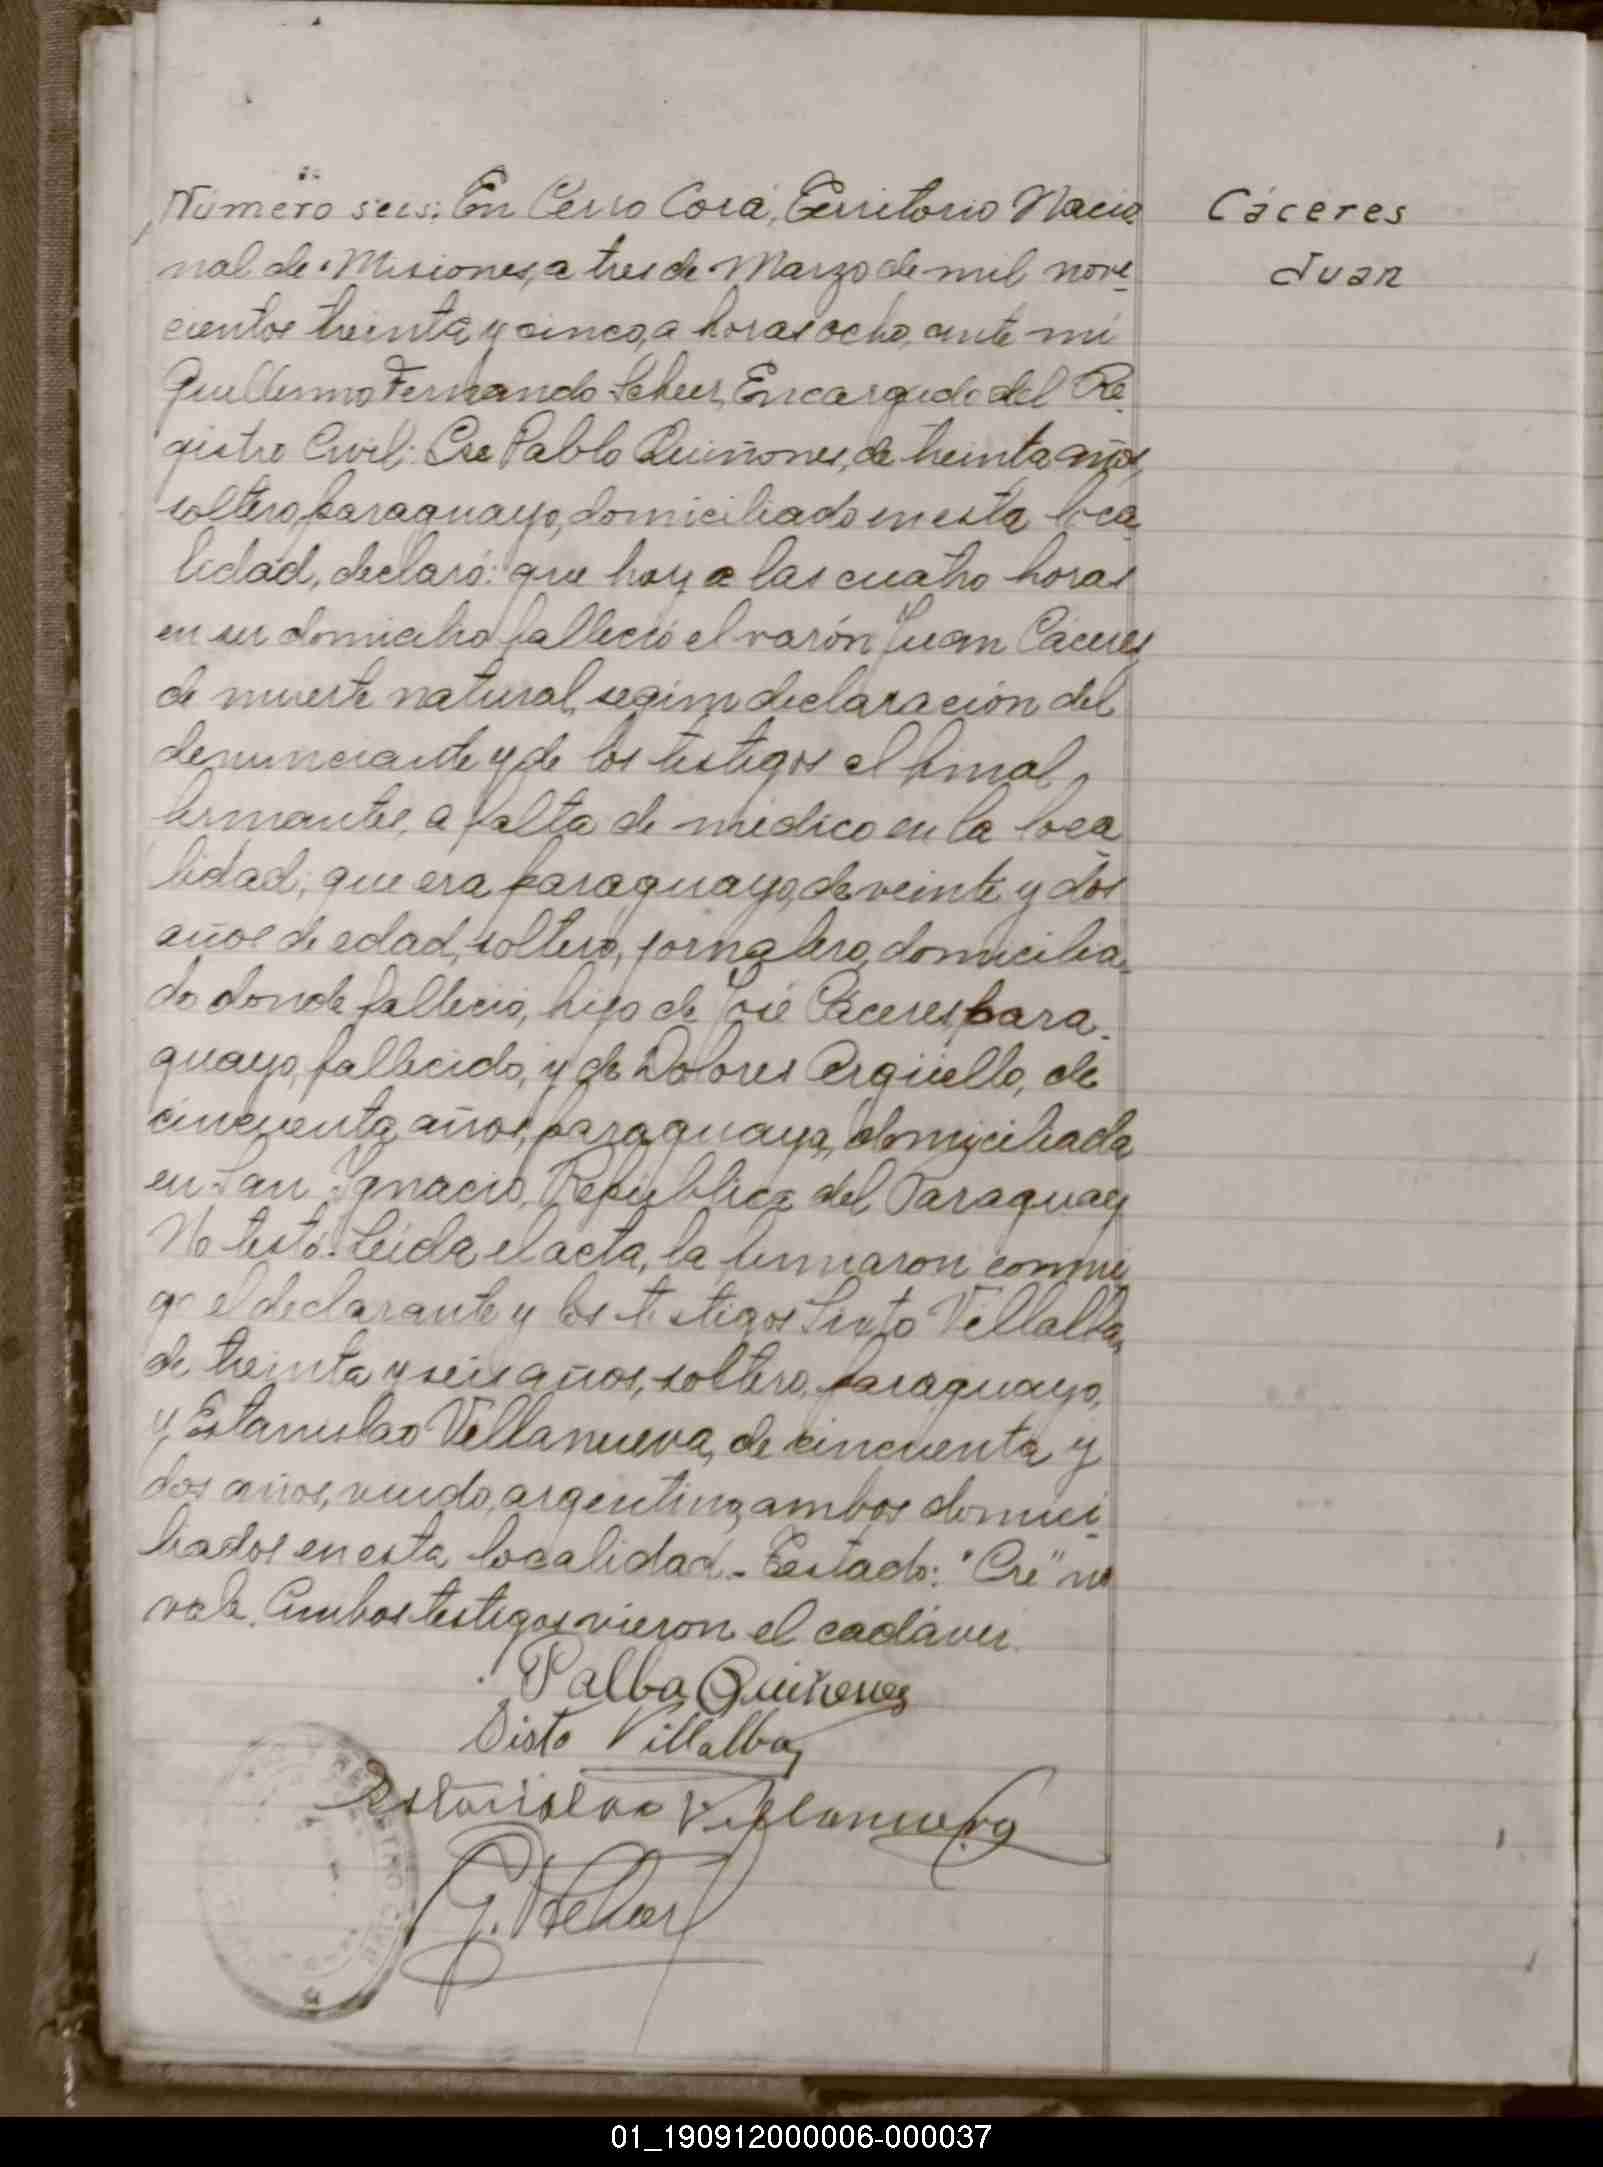 Número seis: En Cerro Corá, Territorio Nacio
nal de Misiones, a tres de Marzo de mil nove
cientos treinta y cinco, a horas ocho, ante mi
Guillermo Fernando Scheer, Encargado del Re
gistro Civil: Cre Pablo Quiñones, de treinta años,
soltero, paraguayo, domiciliado en esta loca
lidad, declaró: que hoy a las cuatro horas
en su domicilio falleció el varón Juan Cáceres,
de muerte natural, según declaración del
denunciante y de los testigos al final
firmantes, a falta de médico en la loca
lidad; que era paraguayo, de veinte y dos
años de edad, soltero, jornalero, domicilia
do donde falleció, hijo de José Cáceres, para
guayo, fallecido, y de Dolores Argüello, de
cincuenta años, paraguaya, domiciliada
en San Ignacio, República del Paraguay
No testó. Leída el acta, la firmaron conmi
go el declarante y los testigos Sixto Villalba,
de treinta y seis años, soltero, paraguayo,
y Estanislao Villanueva, de cincuenta y
dos años, viudo, argentino, ambos domici
liados en esta localidad. Testado: "Cre" no
vale. Ambos testigos vieron el cadáver.
Palbo Quiñones
Sisto Villalba
Estanislao Villanueva
G. Scheer
Cáceres
Juan
REGISTRO CIVIL
01_190912000006-000037